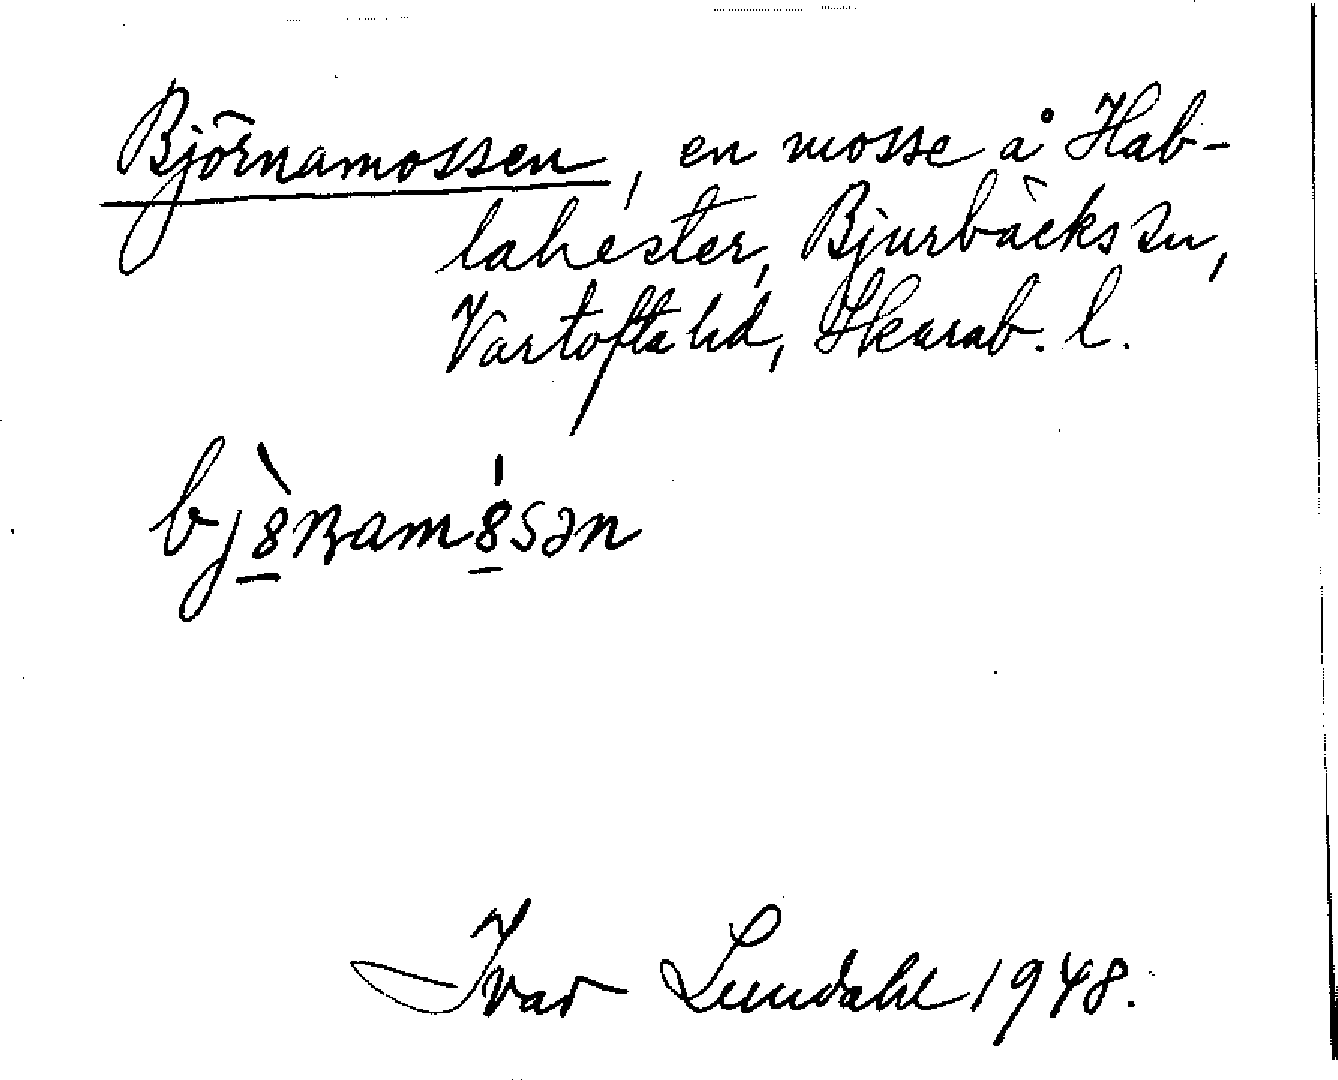 Björnamossen, en mosse å Hab-
lahester, Bjurbäcks sn,
Vartofta hd, Skarab. l.
bjȍ̲ʀam8̲sən
Ivar Lundahl 1948.